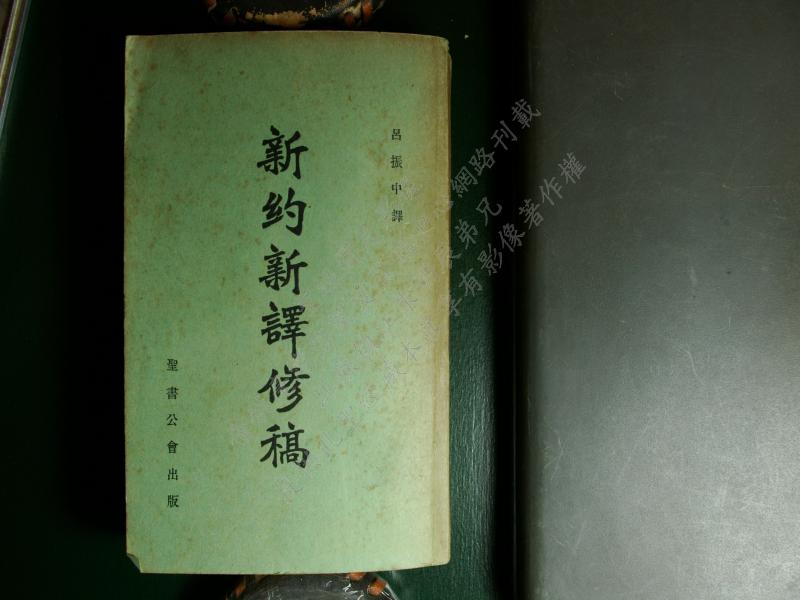 呂振中譯
新约新譯修稿
聖書公會出版
網路刊載
弟兄
有影像著作權